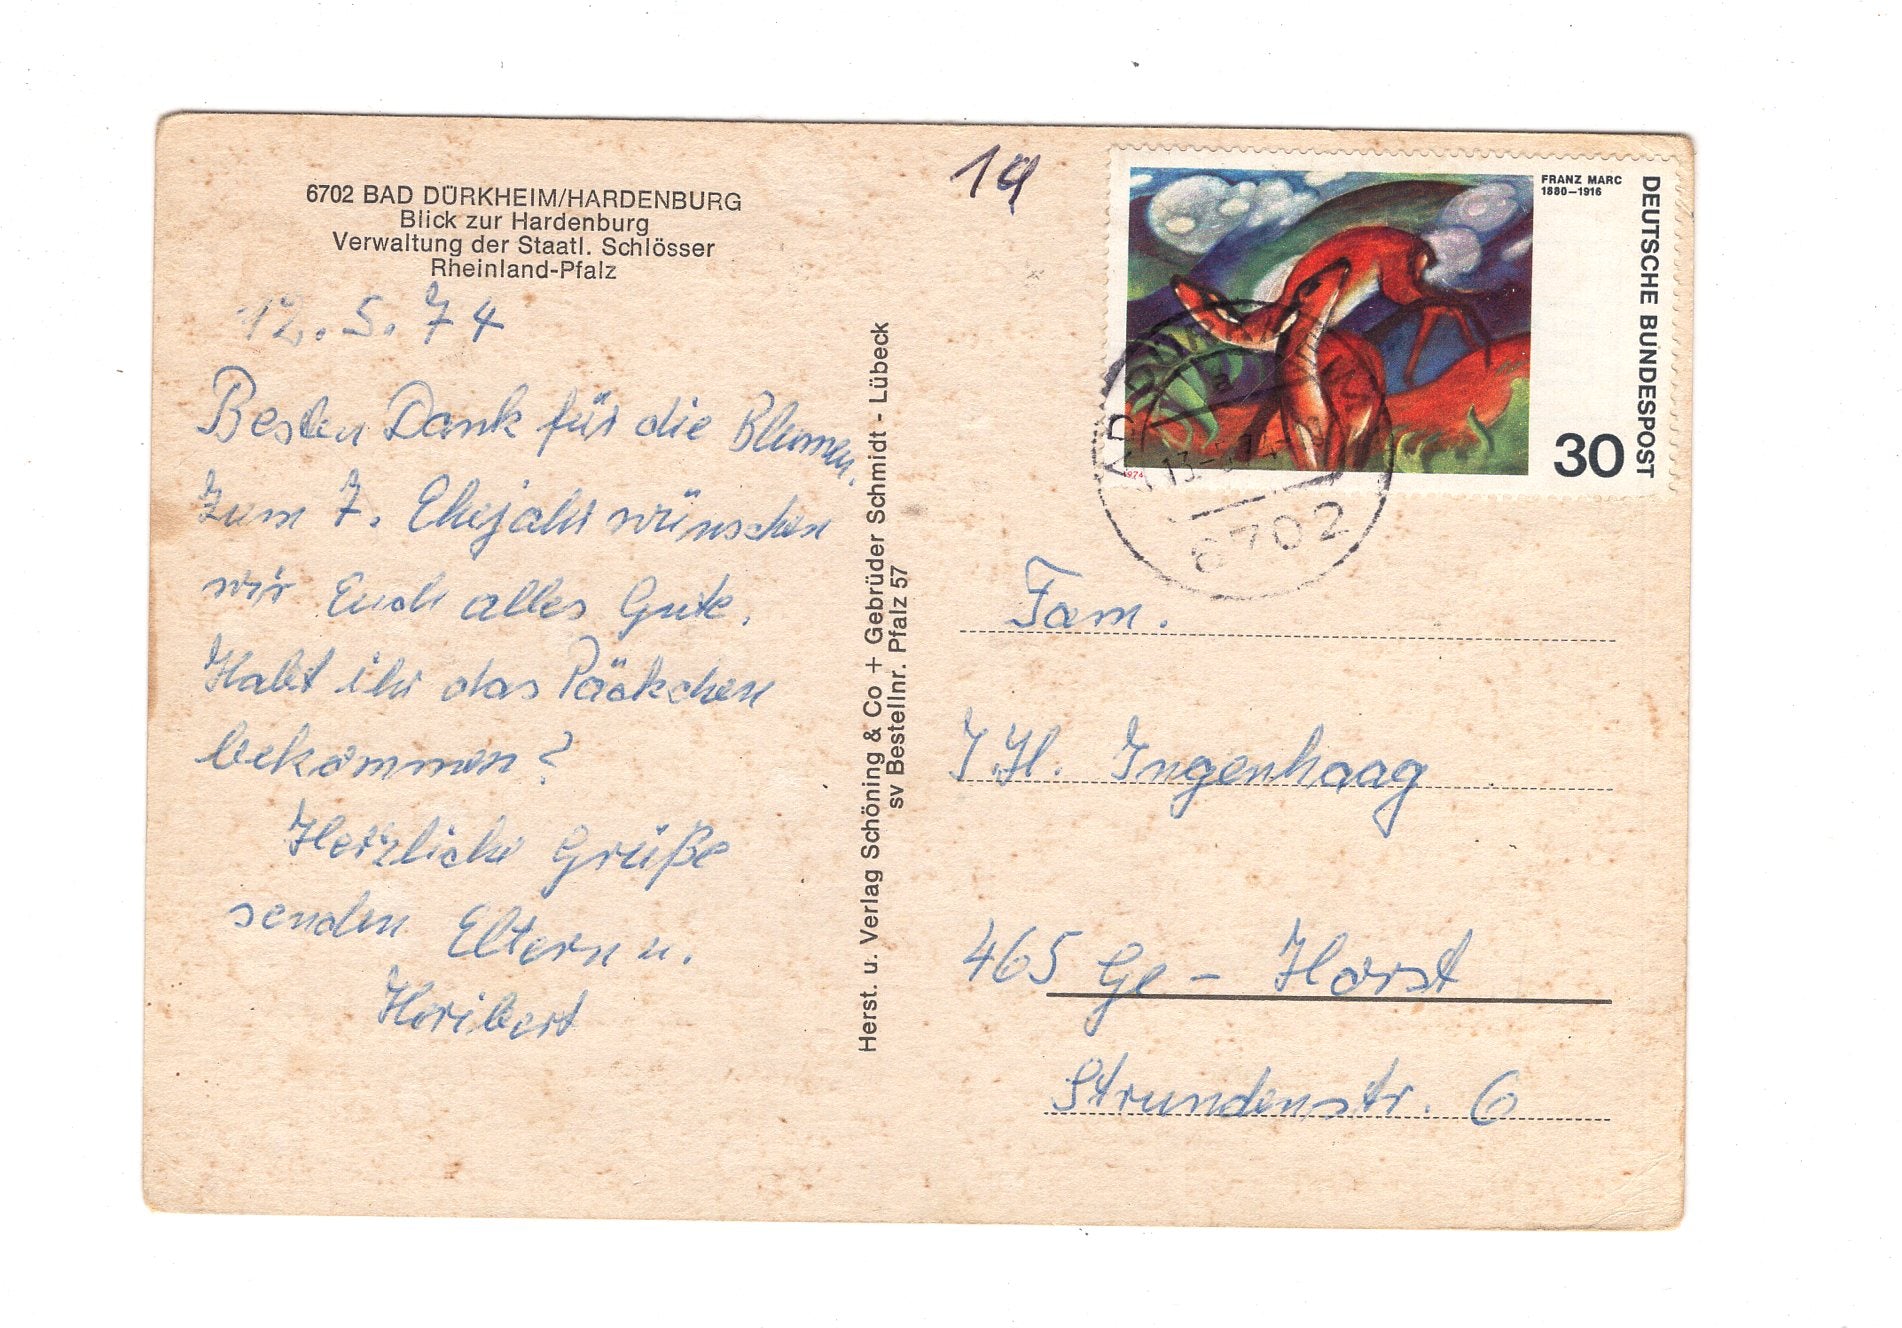 6702 BAD DÜRKHEIM/HARDENBURG
Blick zur Hardenburg
Verwaltung der Staatl. Schlösser
Rheinland-Pfalz
12.5.74
Besten Dank für die Blumen.
Zum 7. Ehejahr wünschen
wir Euch alles Gute.
Habt ihr das Päckchen
bekommen?
Herzliche Grüße
senden Eltern u.
Heribert
Herst. u. Verlag Schöning & Co + Gebrüder Schmidt - Lübeck
sv Bestellnr. Pfalz 57
19
FRANZ MARC
1880–1916
DEUTSCHE BUNDESPOST
30
1974
6702
Fam.
J.H. Ingenhaag
465 Ge - Horst
Strundenstr. 6